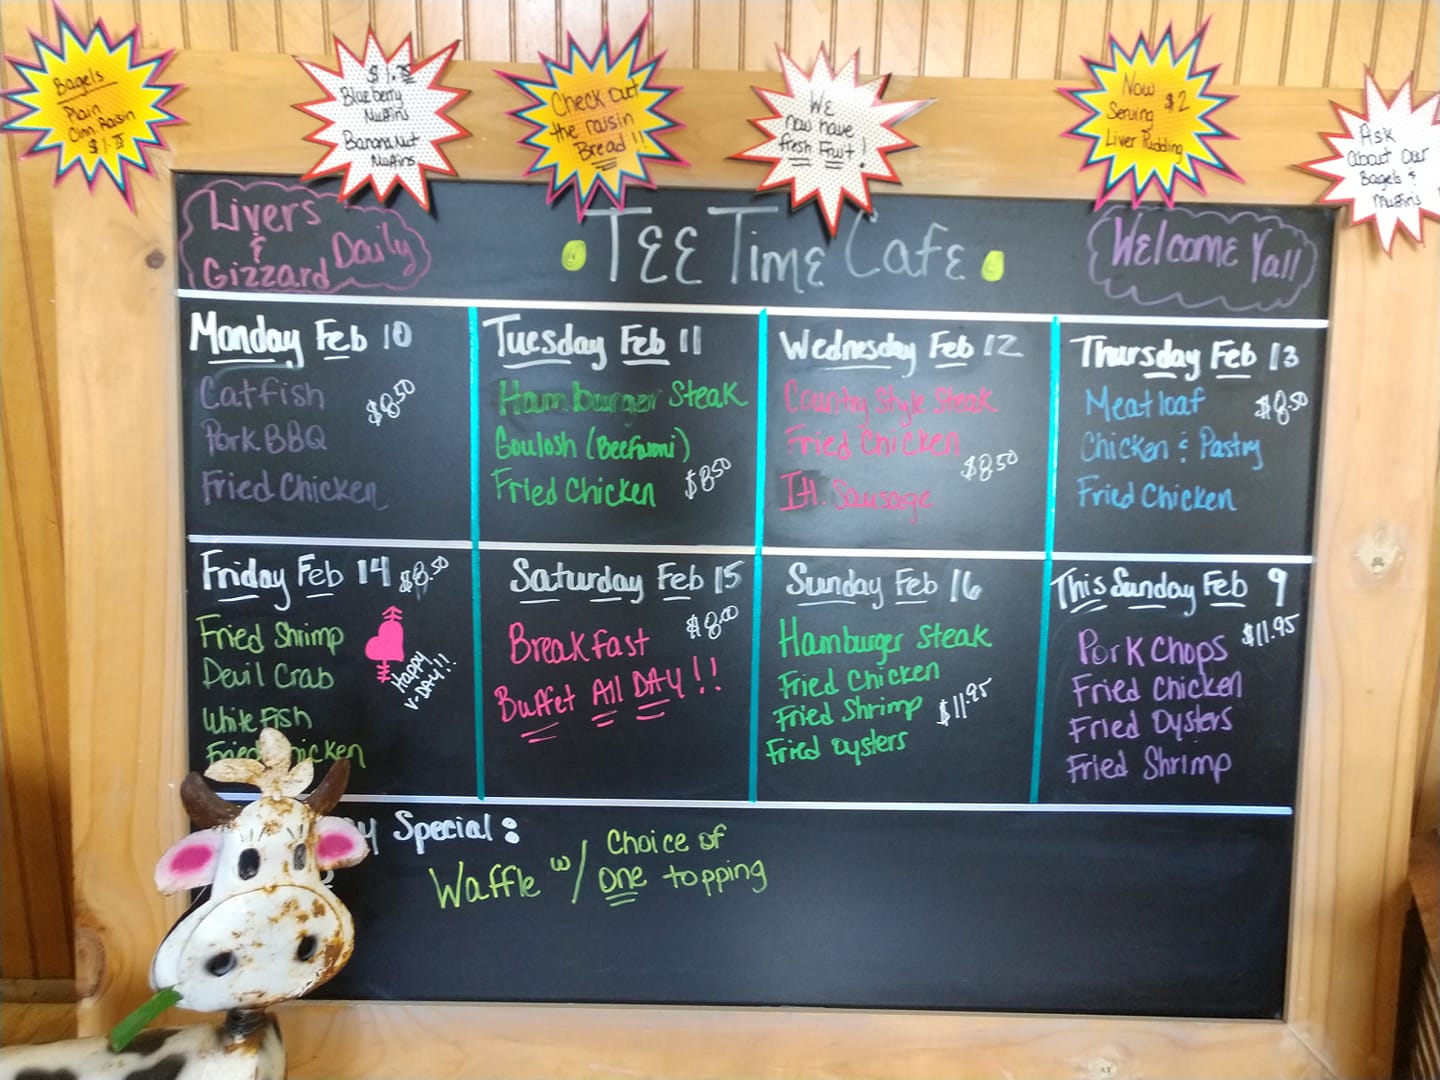 Bagels
Plain
Cinn. Raisin
$1.75
$1.75
Blueberry
Muffins
Banana Nut
Muffins
Check out
the raisin
Bread !!
We
now have
fresh Fruit!
Now
Serving $2
Liver Pudding
Ask
about our
Bagels &
Muffins
Livers
&
Gizzard Daily
TEE Time Cafe
Welcome Yall
Monday Feb 10
Catfish
$8.50
Pork BBQ
Fried Chicken
Tuesday Feb 11
Hamburger Steak
Goulosh (Beefaroni)
Fried Chicken $8.50
Wednesday Feb 12
Country Style Steak
Fried Chicken
$8.50
It. Sausage
Thursday Feb 13
Meatloaf $8.50
Chicken & Pastry
Fried Chicken
Friday Feb 14 $8.50
Fried Shrimp
Devil Crab
White Fish
Fried Chicken
Happy
V-DAY!!
Saturday Feb 15
$8.00
Breakfast
Buffet All DAY!!
Sunday Feb 16
Hamburger Steak
Fried Chicken
Fried Shrimp $11.95
Fried oysters
This Sunday Feb 9
$11.95
Pork Chops
Fried Chicken
Fried Oysters
Fried Shrimp
Special:
Waffle w/ Choice of
one topping